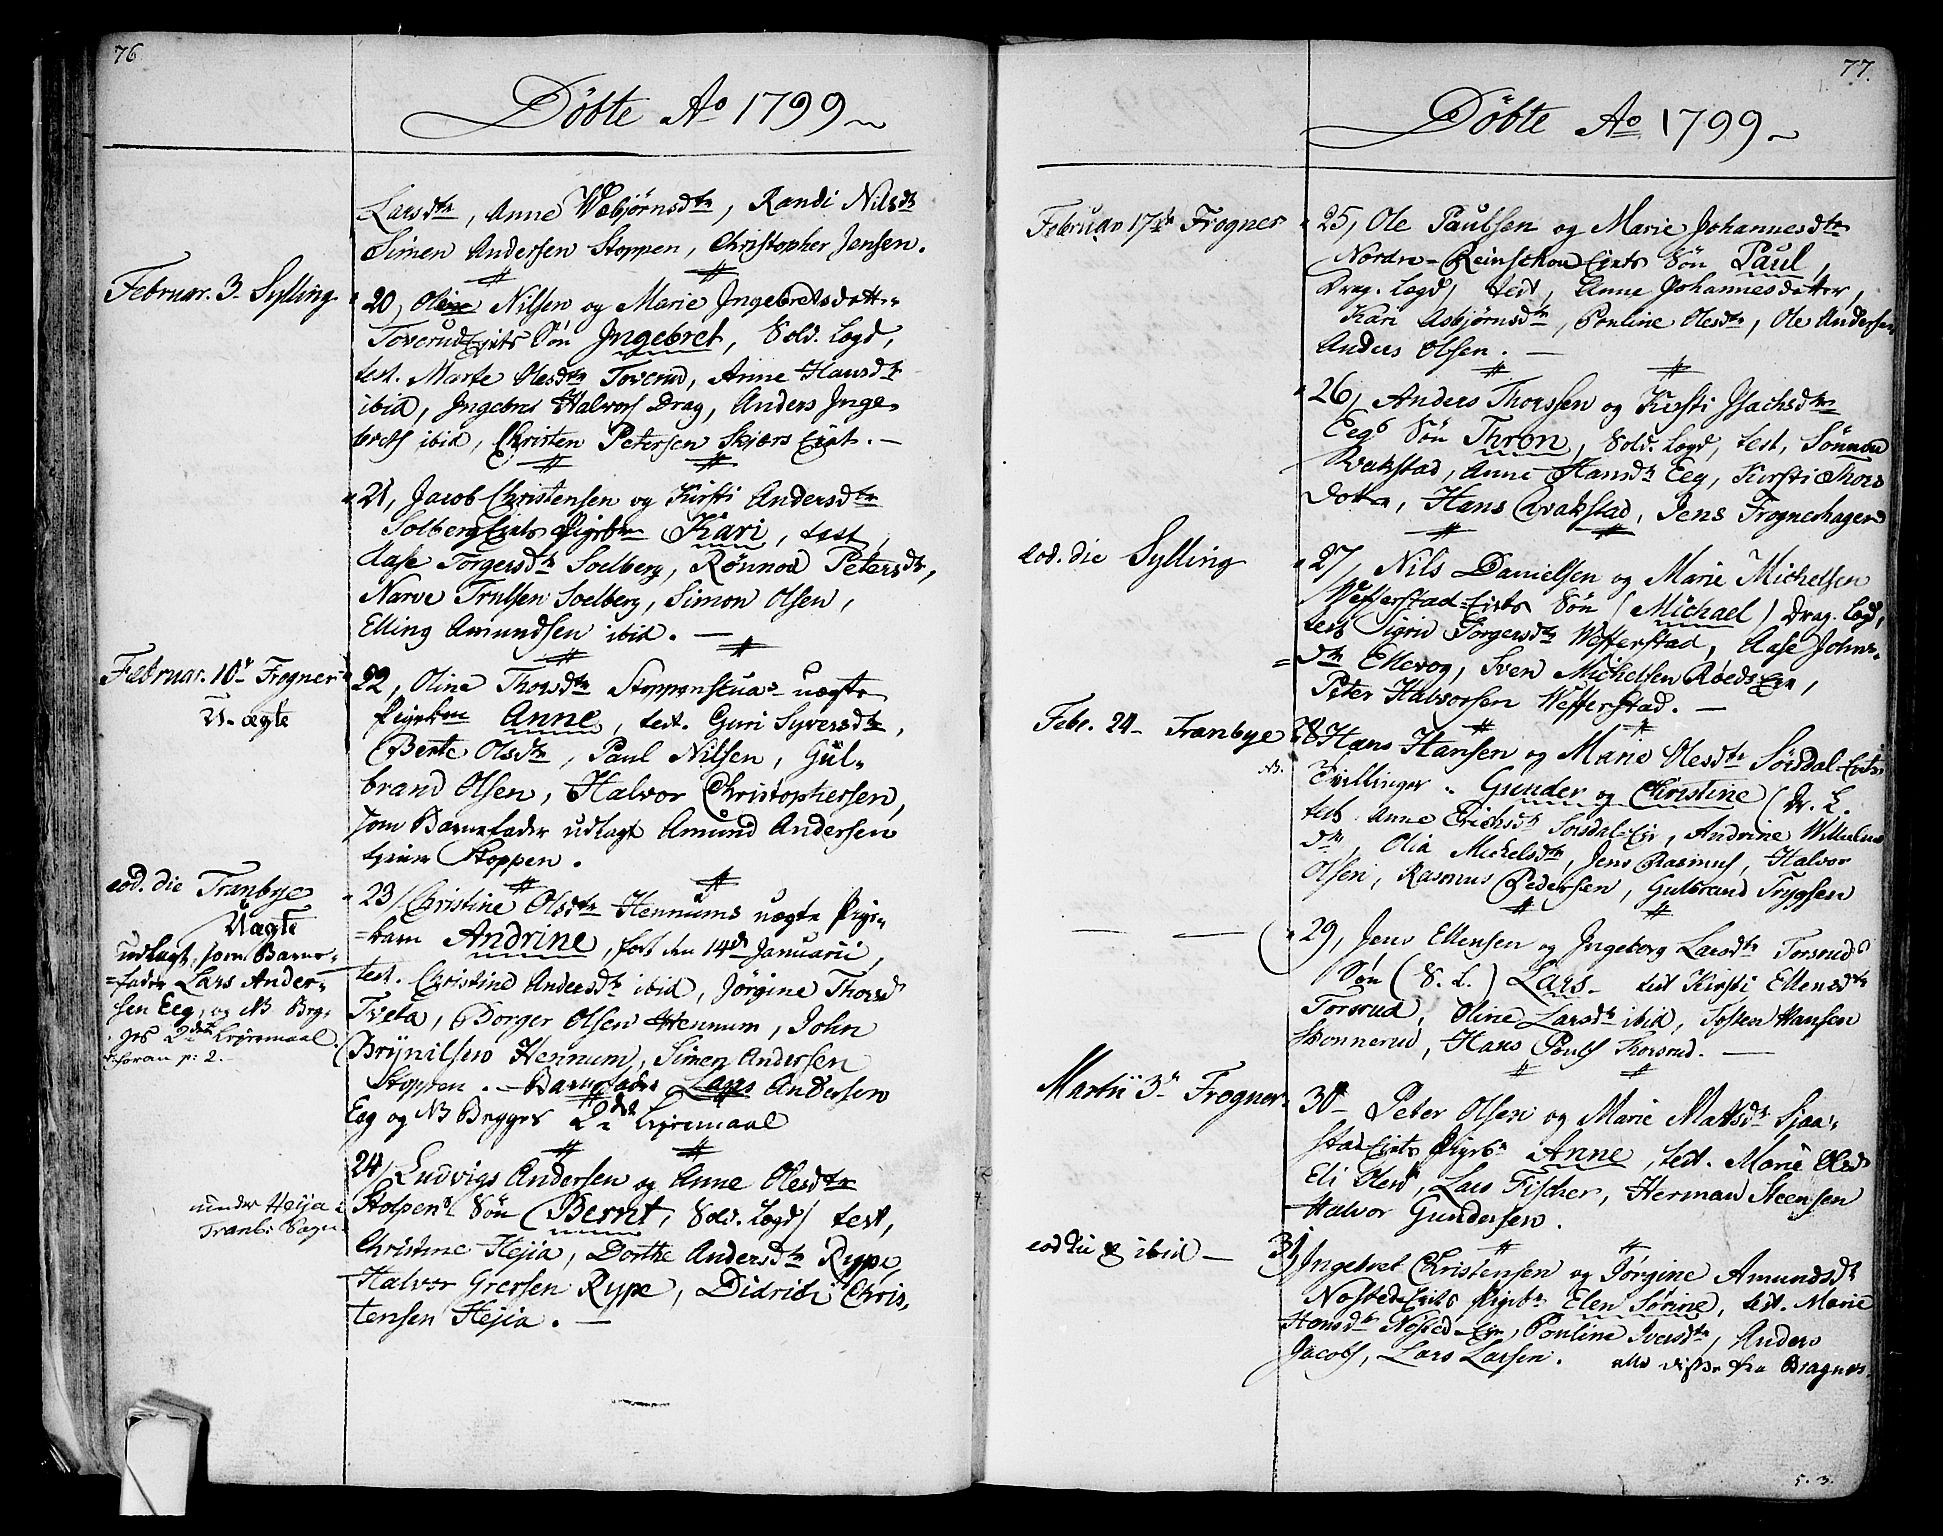 76
Döbte Ao 1799
Larsdtr, Anne Wæbjørnsdtr, Randi Nilsdtr
Simen Andersen Stoppen, Christopher Jensen.
Februar. 3- Sylling
20, Nilsen og Marie Jngebretsdatter
Toverud Eiets Søn Jngebret, Sold. Legd,
test. Marte Olesdtr Toverud, Anne Hansdtr
ibid, Jngebret Halvors Drag, Anders Jnge-
brets ibid, Christen Petersen Skjærs Eiet. -
21, Jacob Christensen og Kirsti Andersdtr
Solberg Eiets Pigebn Kari, test,
Aase Torgersdtr Soelberg, Rønnod Petersdtr,
Narve Trulsen Soelberg, Simon Olsen,
Elling Amundsen ibid. -
Februar. 10- Frogner
U-ægte
22, Oline Thorsdtr Stoppenstuas uægte
Pigebn Anne, test. Guri Syversdtr,
Berte Olsdtr, Paul Nilsen, Gul-
brand Olsen, Halvor Christophersen,
som Barnefader udlagt Amund Andersen
tjener Stoppen.
eod. die Tranbye
Uægte
udlagt, som Barne-
=fader Lars Ander-
sen Eeg, og NB Beg-
ges 2det Lejremaal.
foran p: 2.
23, Christine Olsdtr Hennums uægte Pige-
=barn Andrine, født den 14de Januarii,
test. Christine Andersdtr ibid, Jørgine Thorsd
Tveta, Borger Olsen Hennum, John
Brynilsen Hennum, Simen Andersen
Stoppen. - Barnefader Lars Andersen
Eeg og NB Begges 2det Lejremaal
under Hejia i
Tranb: Sogn
24, Ludvigs Andersen og Anne Olesdtr
Stolpens Søn Bernt, Sold. Legd, test,
Christine Hejia, Dorthe Andersdtr Rype,
Halvor Gresen Rype, Didrich Chris-
tensen Hejia. -
77.
Döbte Ao 1799
Februar 17de Frogner
25, Ole Paulsen og Marie Johannesdtr
Nordre-Reinschou Eiets Søn Paul,
Drag. Legd, test, Anne Johannesdatter,
Kari Asbjørnsdtr, Pouline Olesdtr, Ole Andersen
Anders Olsen. -
26, Anders Thorssen og Kirsti Jsachsdtr
Eegs Søn Thron, Sold. Legd, test, Sønnou
Qvakstad, Anne Hansdtr Eeg, Kirsti Thors
Dotter, Hans Qvakstad, Jens Frognerhagen
eod. die Sylling
27, Nils Danielsen og Marie Michelsen
Wefferstad-Eiets Søn (Michael) Drag. Legd,
test Sigrid Torgersdtr Wefferstad, Aase Johns-
=dtr Ellevog, Sven Michelsen Røeds Eie,
Peter Halvorsen Wefferstad. -
Febr. 24- Tranbye
NB.
28 Hans Hansen og Marie Olesdtr Sørsdal-Eiets
Tvillinger Gunder og Christine (Dr. L.
test Anne Erichsdtr Sørsdal-Eie, Andrine Willums
dtr, Olia Mickelsdtr, Jens Rasmus, Halvor
Olsen, Rasmus Pedersen, Gulbrand Trygsen
29, Jens Ellensen og Jngeborg Larsdtr Torsruds
Søn (S. L.) Lars- test Kirsti Ellensdtr
Torsrud, Oline Larsdtr ibid, Tosten Hansen
Skonnerud, Hans Pouls Thorsrud. -
Martii 3- Frogner
30- Peter Olsen og Marie Matsdtr Sjaa-
stad Eiets Pigebn Anne, test. Marie Olsdr
Eli Olsd, Lars Fischer, Herman Steensen
Halvor Gundersen.
eod die ibid -
31, Jngebret Christensen og Jörgine Amundsdtr
Nøsted Eiets Pigebn Elen Sørine, test. Marie
Hansdtr Nøsted Eie, Pouline Iversdtr, Anders
Jacobs, Lars Larsen. alle disse fra Bragnes.
5. 3.